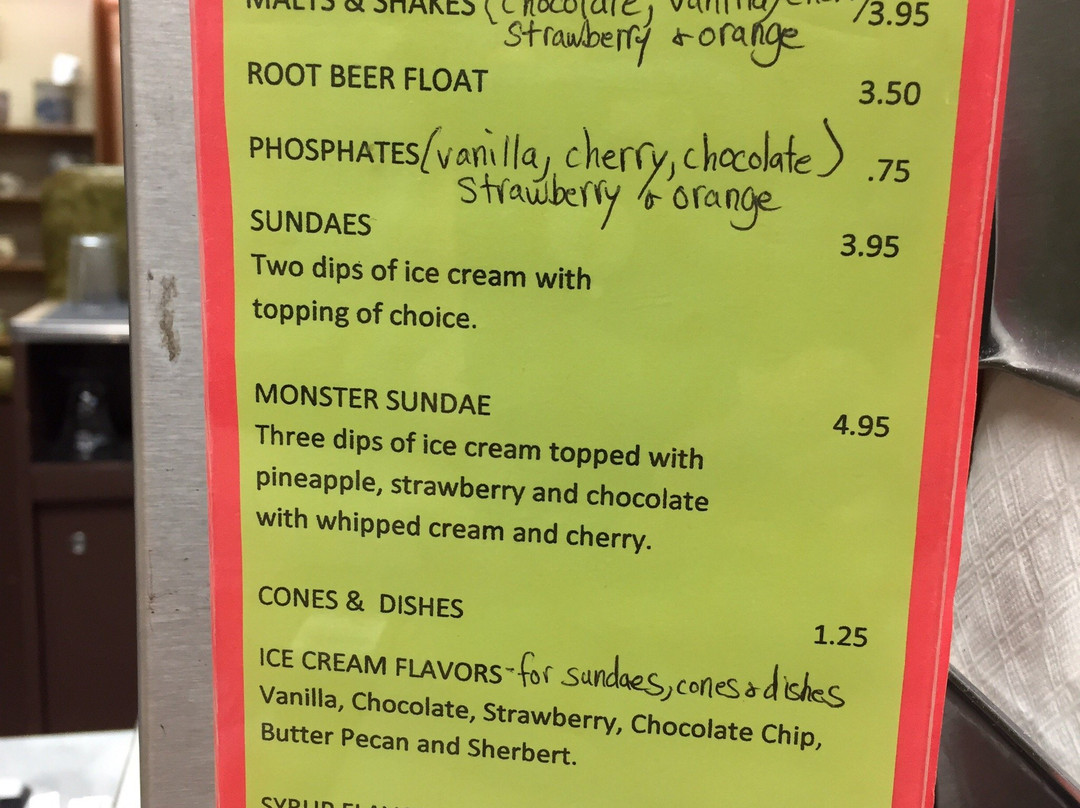 MALTS & SHAKES (chocolate, vanilla, /3.95
strawberry & orange
ROOT BEER FLOAT 3.50
PHOSPHATES (vanilla, cherry, chocolate) .75
strawberry & orange
SUNDAES 3.95
Two dips of ice cream with
topping of choice.
MONSTER SUNDAE 4.95
Three dips of ice cream topped with
pineapple, strawberry and chocolate
with whipped cream and cherry.
CONES & DISHES 1.25
ICE CREAM FLAVORS - for sundaes, cones & dishes
Vanilla, Chocolate, Strawberry, Chocolate Chip,
Butter Pecan and Sherbert.
SYRUP